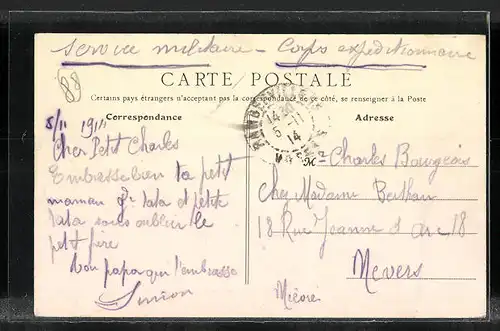 Service militaire - Corps expéditionnaire
88
CARTE POSTALE
Certains pays étrangers n'acceptant pas la correspondance de ce côté, se renseigner à la Poste
Correspondance
Adresse
RAMBERVILLERS
14 30
5 - 11
14
VOSGES
5/11 1914
Cher Petit Charles
Embrasse bien ta petit
maman gd tata et petite
tata sans oublier le
petit frère
ton papa qui t'embrasse
Simon
Mr Charles Bourgeois
Chez Madame Berthan
18 Rue Jeanne d'arc 18
Nevers
Nièvre